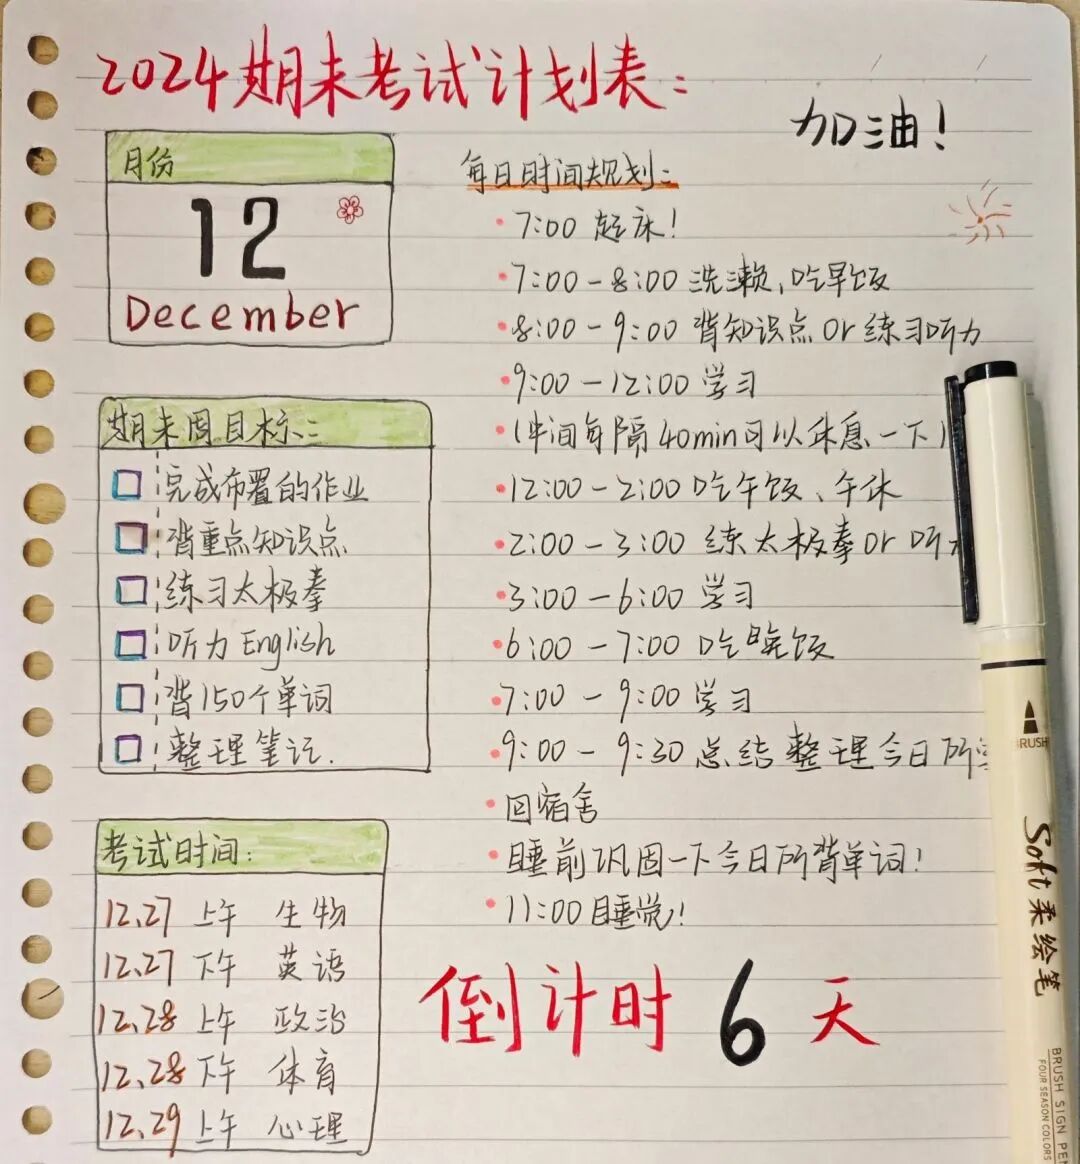 2024期末考试计划表：
加油！
月份
12
December
期末周目标：
完成布置的作业
背重点知识点
练习太极拳
听力 English
背150个单词
整理笔记.
考试时间：
12.27 上午 生物
12.27 下午 英语
12.28 上午 政治
12.28 下午 体育
12.29 上午 心理
每日时间规划：
7:00 起床！
7:00-8:00 洗漱、吃早饭
8:00-9:00 背知识点 or 练习听力
9:00-12:00 学习
(中间每隔40min可以休息一下)
12:00-2:00 吃午饭、午休
2:00-3:00 练太极拳 or 听
3:00-6:00 学习
6:00-7:00 吃晚饭
7:00-9:00 学习
9:00-9:30 总结整理今日所
回宿舍
睡前巩固一下今日所背单词！
11:00 睡觉！
倒计时 6 天
BRUSH
Soft 柔绘笔
BRUSH SIGN PE
FOUR SEASON COLORS